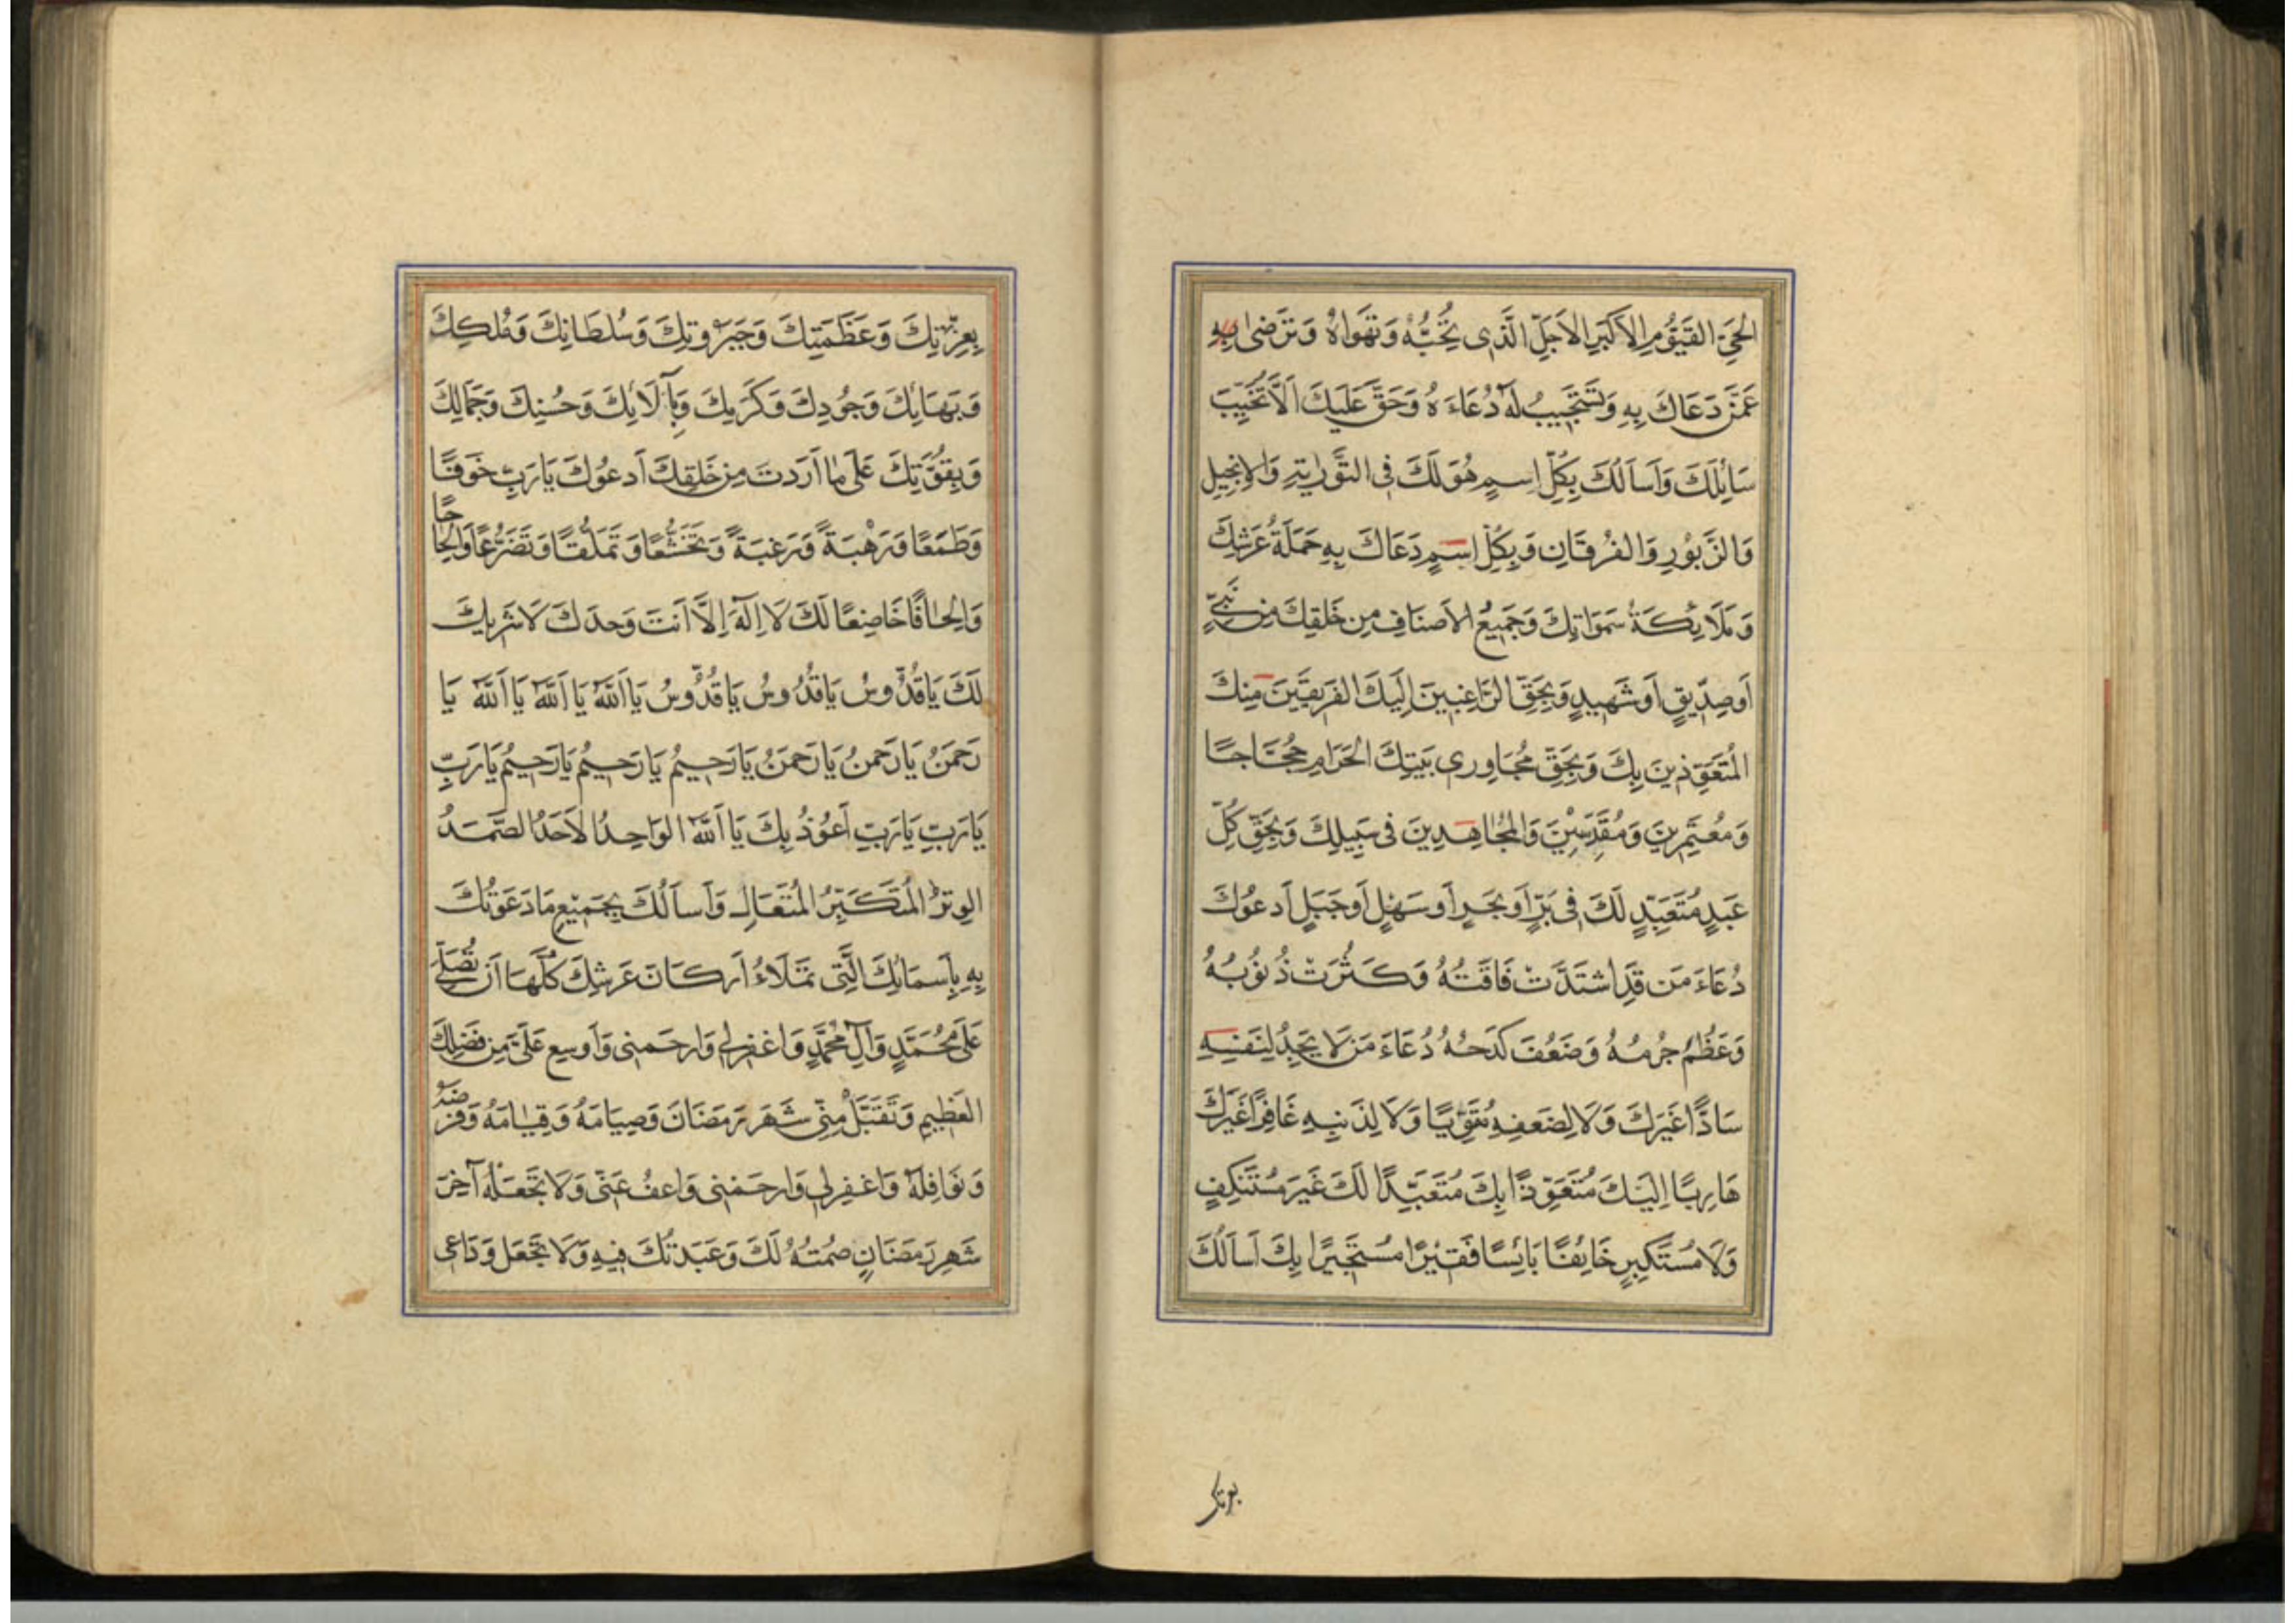 الحَىِّ القَيُّومِ الاَكبَرِ الاَجَلِّ الَّذى تُحِبُّهُ وَتَهواهُ وَتَرضى بِهِ
عَمَّن دَعَاكَ بِهِ وَتَستَجيبُ لَهُ دُعَاءَهُ وَحَقٌّ عَلَيكَ اَلَّا تُخَيِّبَ
سَائِلَكَ وَاَسأَلُكَ بِكُلِّ اِسمٍ هُوَ لَكَ فى التَّورٰيةِ وَالاِنجيلِ
وَالزَّبُورِ وَالفُرقَانِ وَبِكُلِّ اِسمٍ دَعَاكَ بِهِ حَمَلَةُ عَرشِكَ
وَمَلَائِكَةُ سَمَوَاتِكَ وَجَميعُ الاَصنَافِ مِن خَلقِكَ مِن نَبِىٍّ
اَو صِدّيقٍ اَو شَهيدٍ وَبِحَقِّ الرَّاغِبينَ اِلَيكَ الفَرِقينَ مِنكَ
المُتَعَوِّذينَ بِكَ وَبِحَقِّ مُجَاوِرى بَيتِكَ الحَرَامِ حُجَّاجًا
وَمُعتَمِرينَ وَمُقَدِّسينَ وَالمُجَاهِدينَ فى سَبيلِكَ وَبِحَقِّ كُلِّ
عَبدٍ مُتَعَبِّدٍ لَكَ فى بَرٍّ اَو بَحرٍ اَو سَهلٍ اَو جَبَلٍ اَدعُوكَ
دُعَاءَ مَن قَدِ اشتَدَّت فَاقَتُهُ وَكَثُرَت ذُنُوبُهُ
وَعَظُمَ جُرمُهُ وَضَعُفَ كَدحُهُ دُعَاءَ مَن لَا يَجِدُ لِنَفسِهِ
سَادًّا غَيرَكَ وَلَا لِضَعفِهِ مُقَوِّيًا وَلَا لِذَنبِهِ غَافِرًا غَيرَكَ
هَارِبًا اِلَيكَ مُتَعَوِّذًا بِكَ مُتَعَبِّدًا لَكَ غَيرَ مُستَنكِفٍ
وَلَا مُستَكبِرٍ خَائِفًا بَائِسًا فَقيرًا مُستَجيرًا بِكَ اَسأَلُكَ
بِعِزَّتِكَ وَعَظَمَتِكَ وَجَبَرُوتِكَ وَسُلطَانِكَ وَمُلكِكَ
وَبِبَهَائِكَ وَجُودِكَ وَكَرَمِكَ وَبِآلَائِكَ وَحُسنِكَ وَجَمَالِكَ
وَبِقُوَّتِكَ عَلَى مَا اَرَدتَ مِن خَلقِكَ اَدعُوكَ يَا رَبِّ خَوفًا
وَطَمَعًا وَرَهْبَةً وَرَغبَةً وَتَخَشُّعًا وَتَمَلُّقًا وَتَضَرُّعًا وَاِلحَاحًا
وَاِلحَافًا خَاضِعًا لَكَ لَا اِلٰهَ اِلَّا اَنتَ وَحدَكَ لَا شَريكَ
لَكَ يَا قُدُّوسُ يَا قُدُّوسُ يَا قُدُّوسُ يَا اَللّٰهُ يَا اَللّٰهُ يَا اَللّٰهُ يَا
رَحمَنُ يَا رَحمنُ يَا رَحمَنُ يَا رَحيمُ يَا رَحيمُ يَا رَحيمُ يَا رَبِّ
يَا رَبِّ يَا رَبِّ اَعُوذُ بِكَ يَا اَللّٰهُ الوَاحِدُ الاَحَدُ الصَّمَدُ
الوِترُ المُتَكَبِّرُ المُتَعَالِ وَاَسأَلُكَ بِجَميعِ مَا دَعَوتُكَ
بِهِ بِاَسمَائِكَ الَّتى تَملَاءُ اَركَانَ عَرشِكَ كُلَّهَا اَن تُصَلِّىَ
عَلَى مُحَمَّدٍ وَآلِ مُحَمَّدٍ وَاغفِرلى وَارحَمنى وَاَوسِع عَلَىَّ مِن فَضلِكَ
العَظيمِ وَتَقَبَّلْ مِنّى شَهرَ رَمَضَانَ وَصِيَامَهُ وَقِيَامَهُ وَفَرضَهُ
وَنَوَافِلَهُ وَاغفِرلى وَارحَمنى وَاعفُ عَنّى وَلَا تَجعَلهُ آخِرَ
شَهرِ رَمَضَانٍ صُمتُهُ لَكَ وَعَبَدتُكَ فيهِ وَلَا تَجعَل وَدَاعى
بعزتك